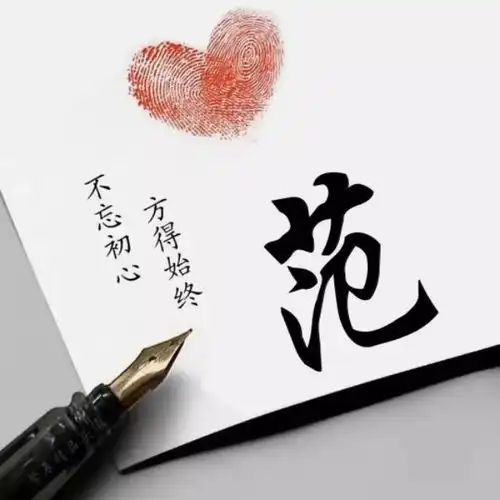 不忘初心
方得始终
范